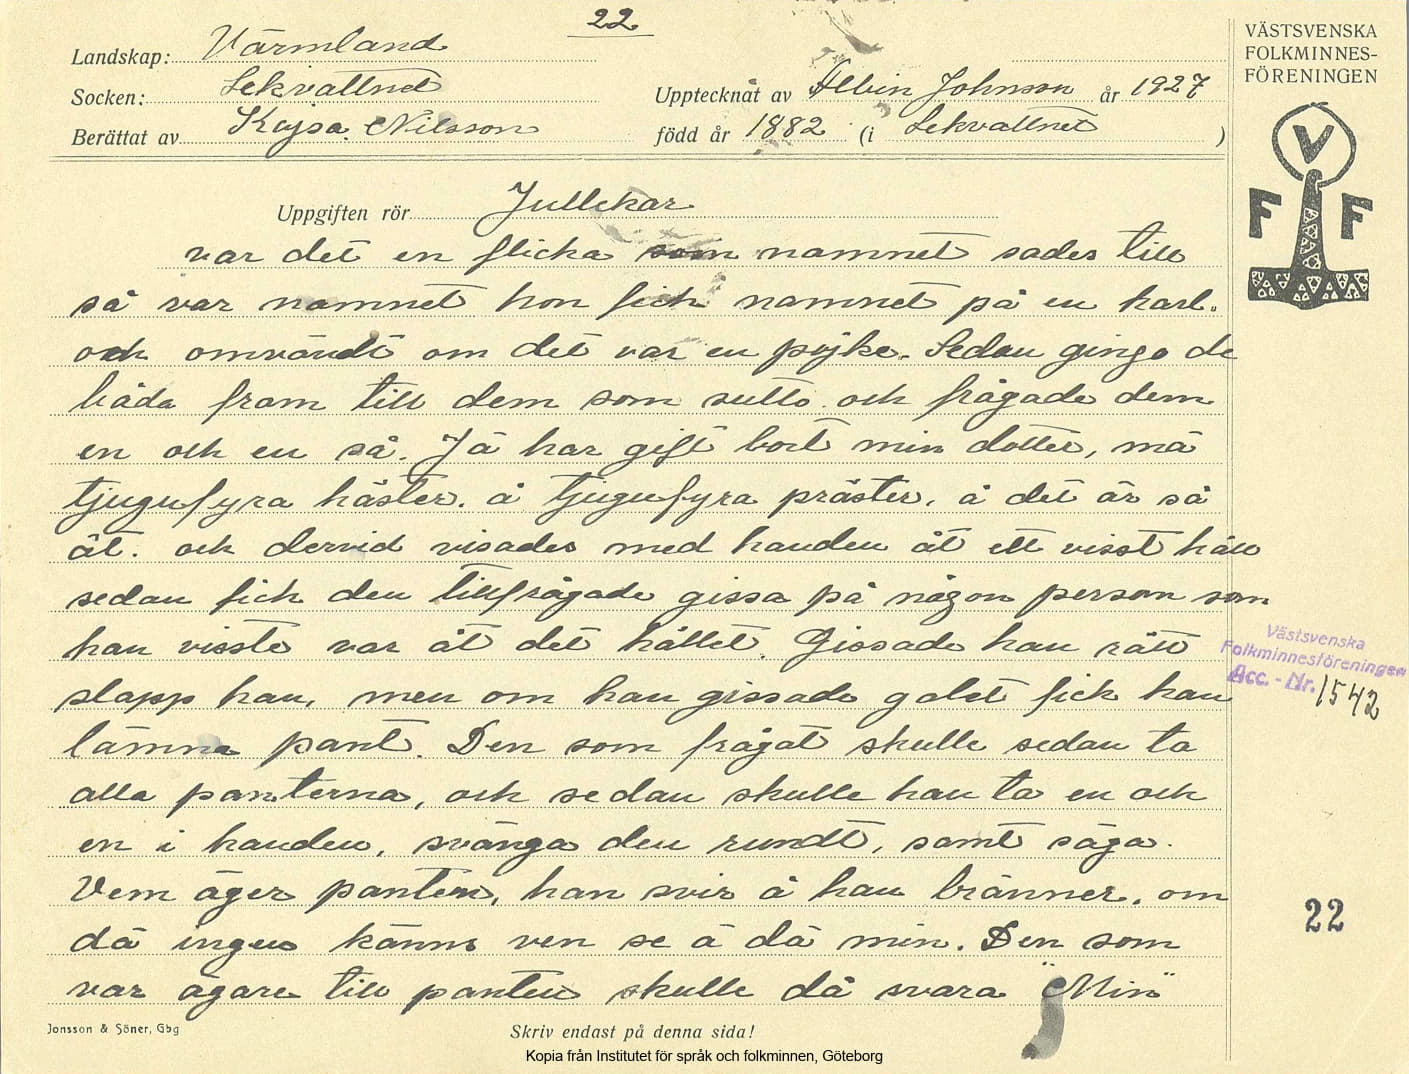 22
Landskap: Värmland
Socken: Lekvattnet
Upptecknat av Albin Johnson år 1927
Berättat av Kajsa Nilsson
född år 1882 (i Lekvattnet )
VÄSTSVENSKA
FOLKMINNES-
FÖRENINGEN
V
F F
Uppgiften rör Jullekar
var det en flicka som namnet sades till
så var namnet hon fick namnet på en karl.
och omvändt om det var en pojke. Sedan gingo de
båda fram till dem som sutto och frågade dem
en och en så. Jä har gift bort min dotter, mä
tjugufyra häster. å tjugufyra präster, å det är så
åt. och dervid visades med handen åt ett visst håll
sedan fick den tillfrågade gissa på någon person som
han visste var åt det hållet. Gissade han rätt
slapp han, men om han gissade galet fick han
lämna pant. Den som frågat skulle sedan ta
alla panterna, och sedan skulle han ta en och
en i handen, svänga den rundt, samt säga.
Vem äger panten, han svir å han bränner, om
dä ingen känns ven se ä dä min. Den som
var ägare till panten skulle då svara "Min"
Västsvenska
Folkminnesföreningen
Acc. - Nr. 1542
22
Jonsson & Söner, Gbg
Skriv endast på denna sida!
Kopia från Institutet för språk och folkminnen, Göteborg